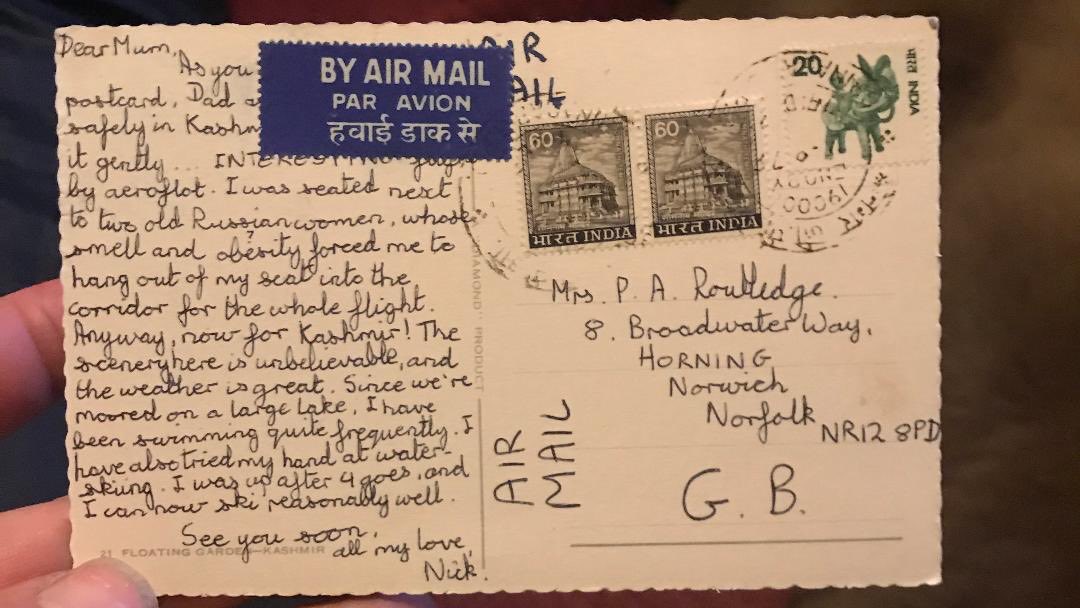 Dear Mum,
As you
postcard, Dad
safely in Kashm
it gently ... INTERESTING flight
by aeroflot. I was seated next
to two old Russian women, whose
smell and obesity forced me to
hang out of my seat into the
corridor for the whole flight.
Anyway, now for Kashmir! The
scenery here is unbelievable, and
the weather is great. Since we're
moored on a large lake, I have
been swimming quite frequently. I
have also tried my hand at water-
skiing. I was up after 4 goes, and
I can now ski reasonably well.
See you soon,
all my love,
Nick.
21 FLOATING GARDEN—KASHMIR
BY AIR MAIL
PAR AVION
हवाई डाक से
AIR
MAIL
DIAMOND" PRODUCT
60
भारत INDIA
60
भारत INDIA
20
भारत INDIA
Mrs. P. A. Routledge.
8. Broadwater Way,
HORNING
Norwich
Norfolk
NR12 8PD
G. B.
AIR
MAIL